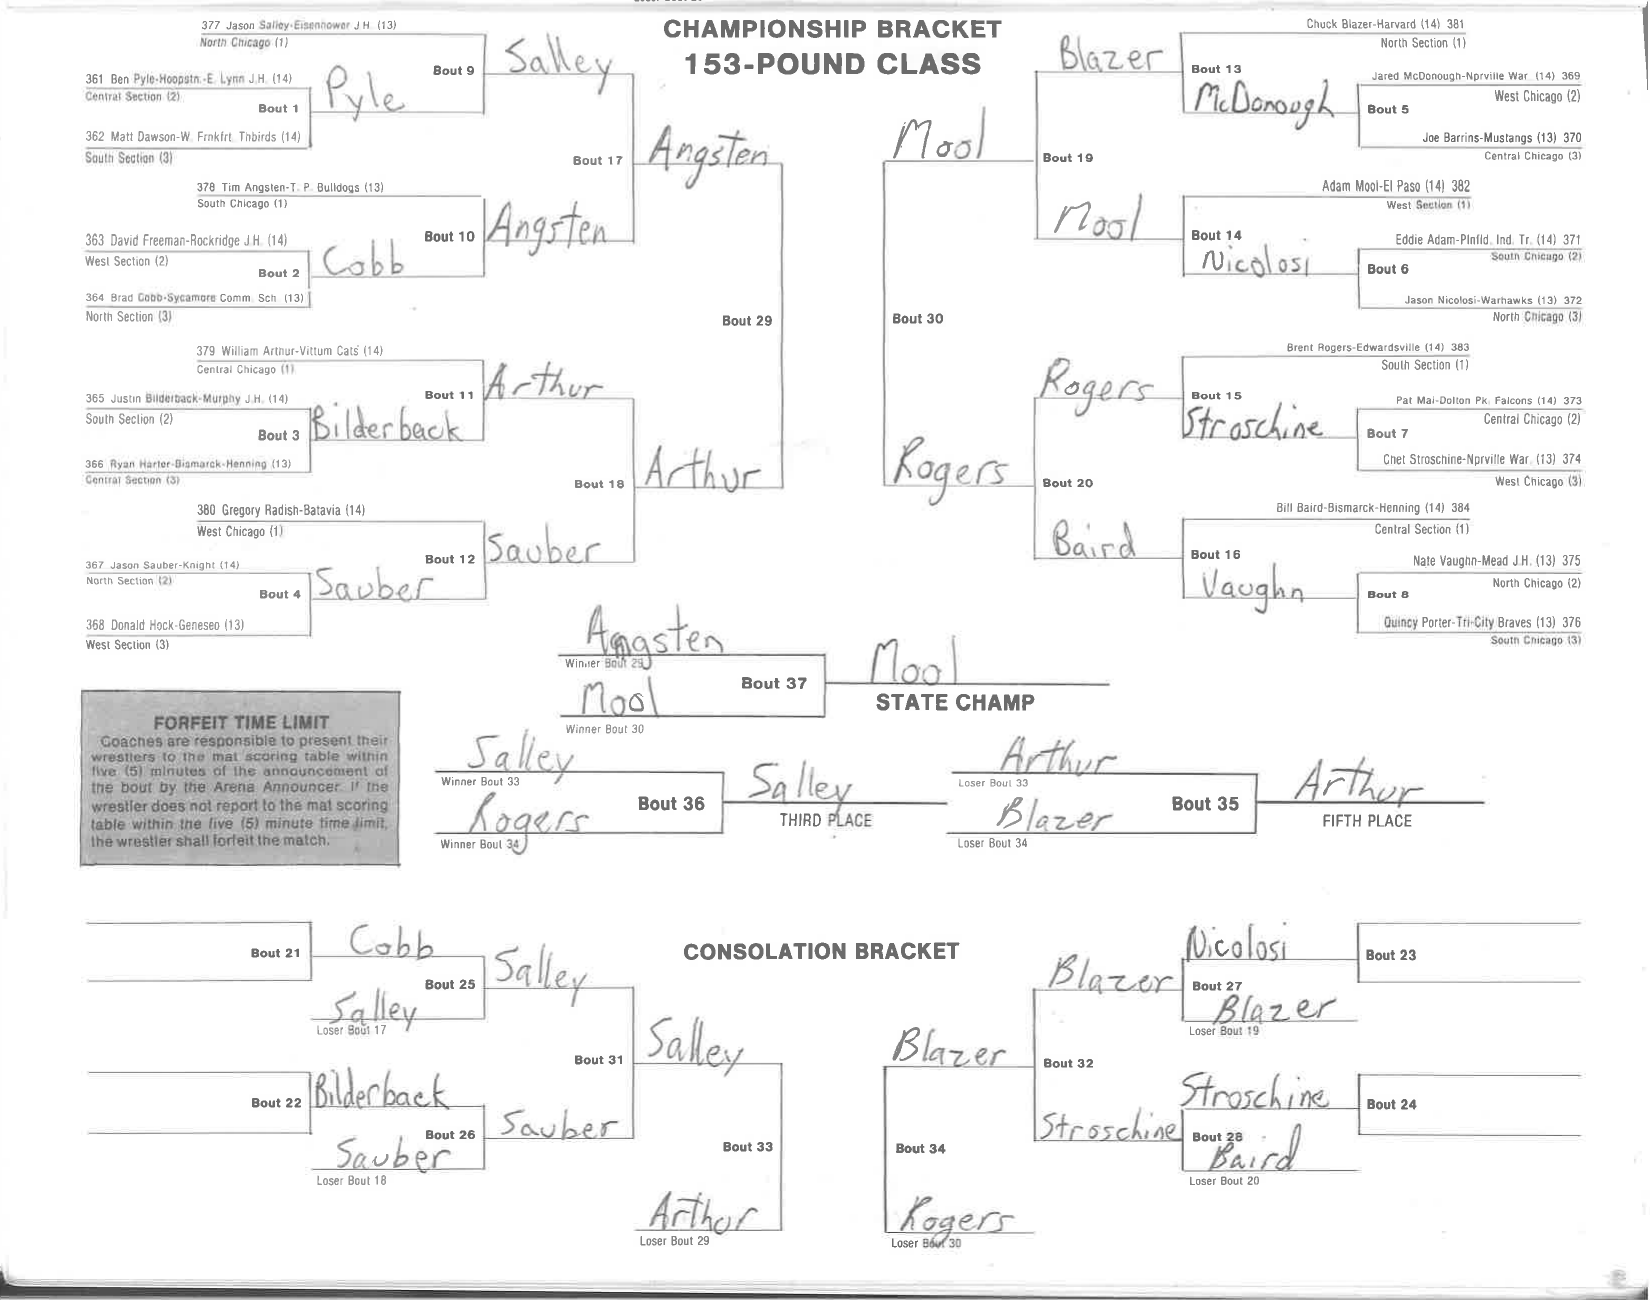 CHAMPIONSHIP BRACKET
153-POUND CLASS
377 Jason Salley-Eisenhower J.H. (13)
North Chicago (1)
Bout 9
Salley
361 Ben Pyle-Hoopstn.-E. Lynn J.H. (14)
Central Section (2)
Bout 1
Pyle
362 Matt Dawson-W. Frnkfrt. Thbirds (14)
South Section (3)
Bout 17
Angsten
378 Tim Angsten-T. P. Bulldogs (13)
South Chicago (1)
Bout 10
Angsten
363 David Freeman-Rockridge J.H. (14)
West Section (2)
Bout 2
Cobb
364 Brad Cobb-Sycamore Comm. Sch. (13)
North Section (3)
Bout 29
379 William Arthur-Vittum Cats (14)
Central Chicago (1)
Bout 11
Arthur
365 Justin Bilderback-Murphy J.H. (14)
South Section (2)
Bout 3
Bilderback
366 Ryan Harter-Bismarck-Henning (13)
Central Section (3)
Bout 18
Arthur
380 Gregory Radish-Batavia (14)
West Chicago (1)
Bout 12
Sauber
367 Jason Sauber-Knight (14)
North Section (2)
Bout 4
Sauber
368 Donald Hock-Geneseo (13)
West Section (3)
Chuck Blazer-Harvard (14) 381
North Section (1)
Blazer
Bout 13
Jared McDonough-Nprville War. (14) 369
West Chicago (2)
McDonough
Bout 5
Joe Barrins-Mustangs (13) 370
Central Chicago (3)
Mool
Bout 19
Adam Mool-El Paso (14) 382
West Section (1)
Mool
Bout 14
Eddie Adam-Plnfld. Ind. Tr. (14) 371
South Chicago (2)
Nicolosi
Bout 6
Jason Nicolosi-Warhawks (13) 372
North Chicago (3)
Bout 30
Brent Rogers-Edwardsville (14) 383
South Section (1)
Rogers
Bout 15
Pat Mai-Dolton Pk. Falcons (14) 373
Central Chicago (2)
Stroschine
Bout 7
Chet Stroschine-Nprville War. (13) 374
West Chicago (3)
Rogers
Bout 20
Bill Baird-Bismarck-Henning (14) 384
Central Section (1)
Baird
Bout 16
Nate Vaughn-Mead J.H. (13) 375
North Chicago (2)
Vaughn
Bout 8
Quincy Porter-Tri-City Braves (13) 376
South Chicago (3)
Angsten
Winner Bout 29
Bout 37
Mool
Mool
STATE CHAMP
Winner Bout 30
FORFEIT TIME LIMIT
Coaches are responsible to present their
wrestlers to the mat scoring table within
five (5) minutes of the announcement of
the bout by the Arena Announcer. If the
wrestler does not report to the mat scoring
table within the five (5) minute time limit,
the wrestler shall forfeit the match.
Salley
Winner Bout 33
Bout 36
Rogers
Winner Bout 34
Salley
THIRD PLACE
Arthur
Loser Bout 33
Bout 35
Blazer
Loser Bout 34
Arthur
FIFTH PLACE
CONSOLATION BRACKET
Bout 21
Cobb
Bout 25
Salley
Salley
Loser Bout 17
Bout 31
Salley
Bout 22
Bilderback
Bout 26
Sauber
Sauber
Loser Bout 18
Bout 33
Arthur
Loser Bout 29
Nicolosi
Bout 23
Blazer
Bout 27
Blazer
Loser Bout 19
Blazer
Bout 32
Stroschine
Bout 24
Stroschine
Bout 28
Baird
Loser Bout 20
Bout 34
Rogers
Loser Bout 30